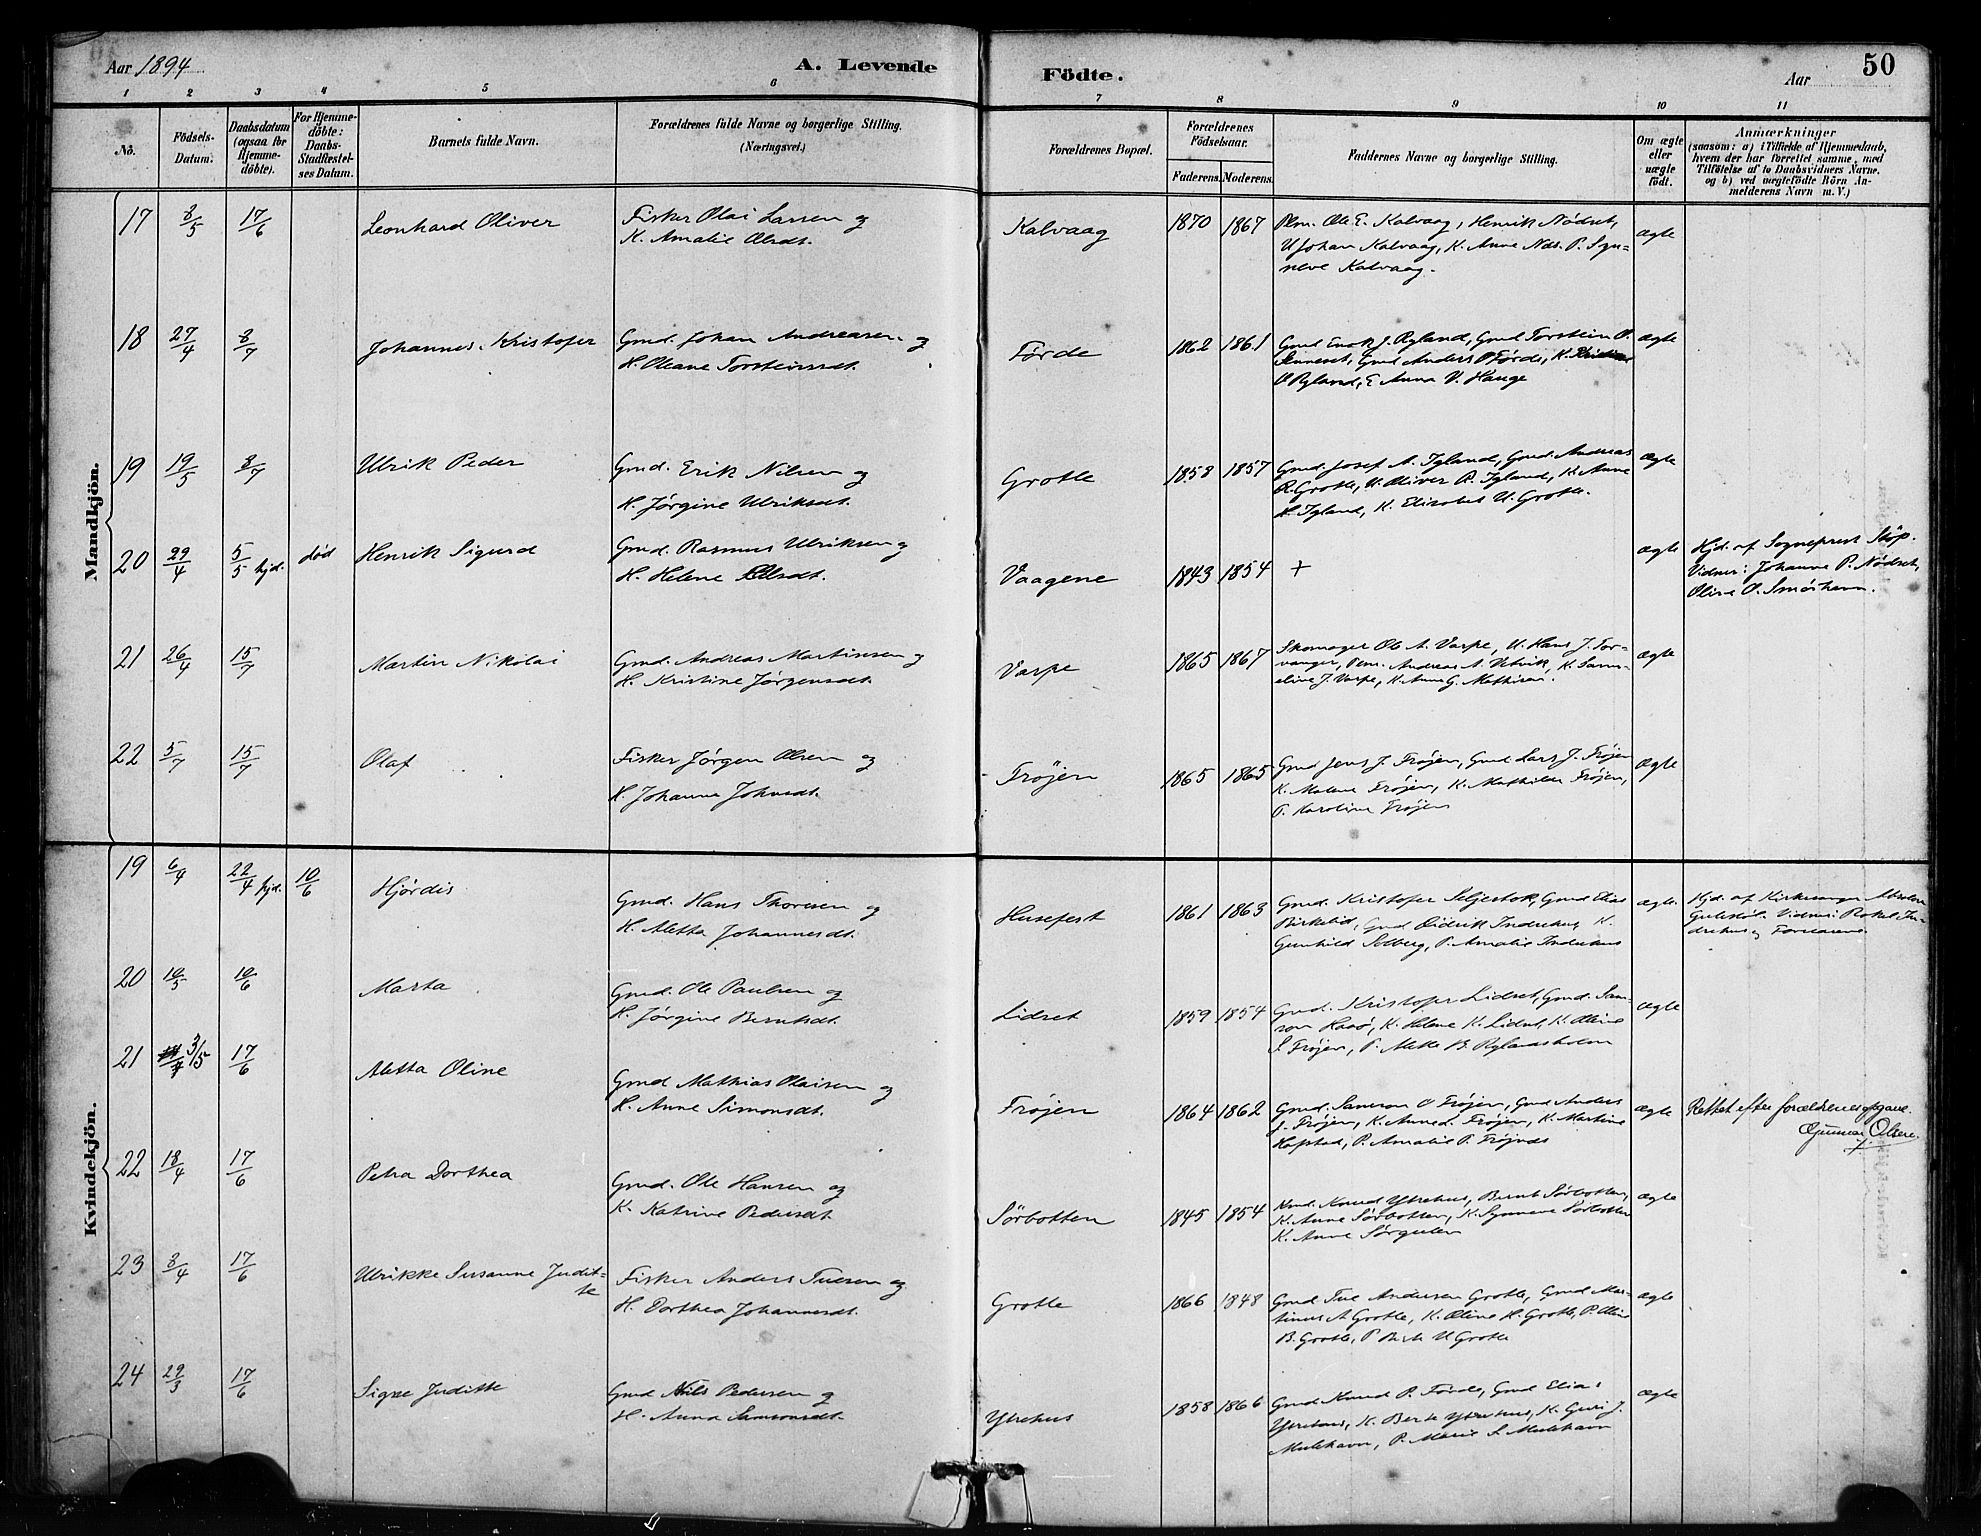 Aar 1894
A. Levende
Födte.
Aar
50
1 2 3 4 5 6 7 8 9 10 11
No.
Födsels-
Datum.
Daabsdatum
(ogsaa for
Hjemme-
døbte).
For Hjemme-
døbte:
Daabs-
Stadfæstel-
ses Datum.
Barnets fulde Navn.
Forældrenes fulde Navne og borgerlige Stilling.
(Næringsvei.)
Forældrenes Bopæl.
Forældrenes
Födselsaar.
Faderens. Moderens.
Faddernes Navne og borgerlige Stilling.
Om ægte
eller
uægte
født.
Anmærkninger
(saasom: a) i Tilfælde af Hjemmedaab,
hvem der har forrettet samme, med
Tilföielse af to Daabsvidners Navne,
og b) ved uægtefödte Börn An-
melderens Navn m. V.)
Mandkjön.
17 8/5 17/6 Leonhard Oliver
Fisker Olai Larsen og
K. Amalie Olsdt.
Kalvaag 1870 1867
Pkm. Ole E. Kalvaag, Henrik Nødset,
U Johan Kalvaag, K. Anne Nds. P. Syn-
neve Kalvaag.
ægte
18 27/4 8/7 Johannes Kristofer
Gmd. Johan Andreassen og
H. Oleane Torsteinsdt.
Førde 1862 1861
Gmd Enok J. Ryland, Gmd Torstein O.
Senneset, Gmd Anders O Førde, K.
O Ryland, E Anna V. Hauge
ægte
19 19/5 8/7 Ulrik Peder
Gmd. Erik Nilsen og
H. Jørgine Ulriksdt.
Grotle 1858 1857
Gmd. Josef A. Igland, Gmd. Andreas
R. Grotle, U. Oliver R. Igland, K. Anne
H. Igland, K. Elisabet U. Grotle.
ægte
20 29/4 5/5 hjd. død Henrik Sigurd
Gmd. Rasmus Ulriksen og
H. Helene Olsdt.
Vaagene 1843 1854 +
ægte
Hjd. af Sogneprest Støp.
Vidner: Johanne P. Nødset,
Oline O. Smørhavn.
21 26/4 15/7 Martin Nikolai
Gmd. Andreas Martinsen og
H. Kristine Jørgensdt.
Varpe 1865 1867
Skomager Ole A. Varpe, U. Hans J. Tor-
vanger, Pkm. Andreas A. Utvik, K. Sam-
eline J. Varpe, K. Anne G. Mathisen.
ægte
22 5/7 15/7 Olaf
Fisker Jørgen Olsen og
H. Johanne Johnsdt.
Frøjen 1865 1865
Gmd Jens J. Frøjen, Gmd Lars J. Frøjen
K. Malene Frøjen, K. Mathilde Frøjen,
P. Karoline Frøjen
ægte
Kvindekjön.
19 6/4 22/4 hjd. 10/6 Hjørdis
Gmd. Hans Thoresen og
H. Aletta Johannesdt.
Husefest 1861 1863
Gmd. Kristofer Seljestok, Gmd Elias
Birkelid, Gmd Didrik Indrehus, K.
Gunhild Solberg, P. Amalie Indrehus
ægte.
Hjd. af Kirkesanger
Vidner: Rakel In-
drehus og
20 10/5 10/6 Marta
Gmd. Ole Paulsen og
H. Jørgine Berntsdt.
Lidset 1859 1854
Gmd. Kristofer Lidset, Gmd. Sam-
son Hasø, K. Helene K. Lidset, K. Oline
S. Frøjen, P. Mette B. Rylandsholm
ægte
21 3/5 17/6 Aletta Oline
Gmd Mathias Olaisen og
H. Anne Simonsdt.
Frøjen 1864 1862
Gmd. Samson O Frøjen, Gmd Anders
J. Frøjen, K. Anne d. Frøjen, K. Martine
Hopstad, P. Amalie P. Frøjnes
ægte
Rettet efter forældrenes opgave.
Gunnar Olsen.
22 18/4 17/6 Petra Dorthea
Gmd. Ole Hansen og
K. Katrine Pedersdt.
Sørbotten 1845 1854
Gmd. Knud Ytrehus, Bernt Sørbotten,
K. Anne Sørbotten, K. Synneve Sørbotten
K. Anne Sørgulen
ægte
23 8/4 17/6 Ulrikke Susanne Judit-
te
Fisker Anders Tuesen og
H. Dorthea Johannesdt.
Grotle 1866 1848
Gmd Tue Andersen Grotle, Gmd Mar-
tinus A Grotle, K. Oline H. Grotle, P. Oline
B. Grotle, P Berte U Grotle
ægte
24 29/3 17/6 Signe Juditte
Gmd Nils Pedersen og
H. Anna Samsonsdt.
Ytrehus 1858 1866
Gmd Knud P. Førde, Gmd Elias
Ytrehus, K. Berte Ytrehus, K. Guri J.
Mulehavn, P. Marie S. Mulehavn
ægte